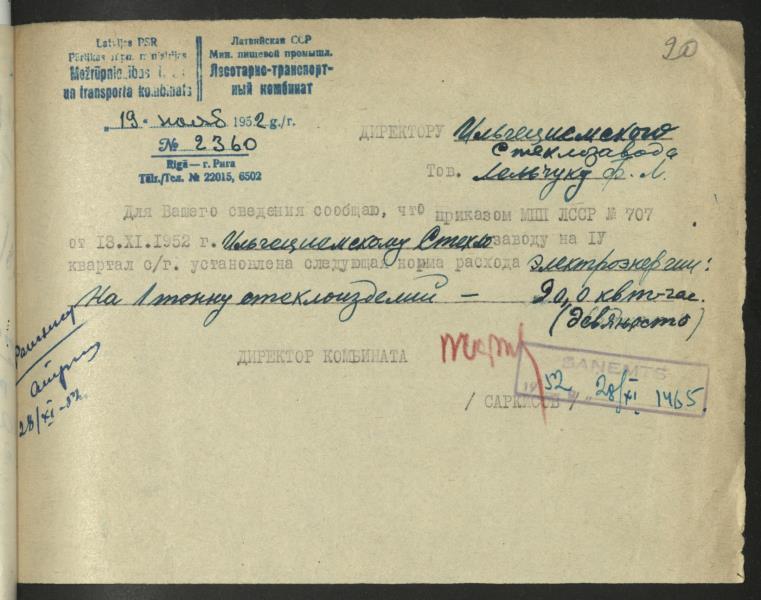 20
Latvijas PSR
Pārtikas rūpn. ministrijas
Mežrūpniecības
un transporta kombinats
Латвийская ССР
Мин. пищевой промышл.
Лесотарно-транспорт-
ный комбинат
"19" нояб 1952 g./г.
№ 2360
Rīgā — г. Рига
Tālr./Тел. № 22015, 6502
ДИРЕКТОРУ Ильгециемского
Стеклозавода
Тов. Лельчуку Ф. Л.
Для Вашего сведения сообщаю, что приказом МПП ЛССР № 707
от 13.XI.1952 г. Ильгециемскому Стеклозаводу на IУ
квартал с/г. установлена следующая норма расхода электроэнергии:
На 1 тонну стеклоизделий — 90,0 квт-час.
(девяносто)
ДИРЕКТОР КОМБИНАТА
/ САРКИСОВ /
SAŅEMTS
1952. 28/XI 1465.
28/XI-52.